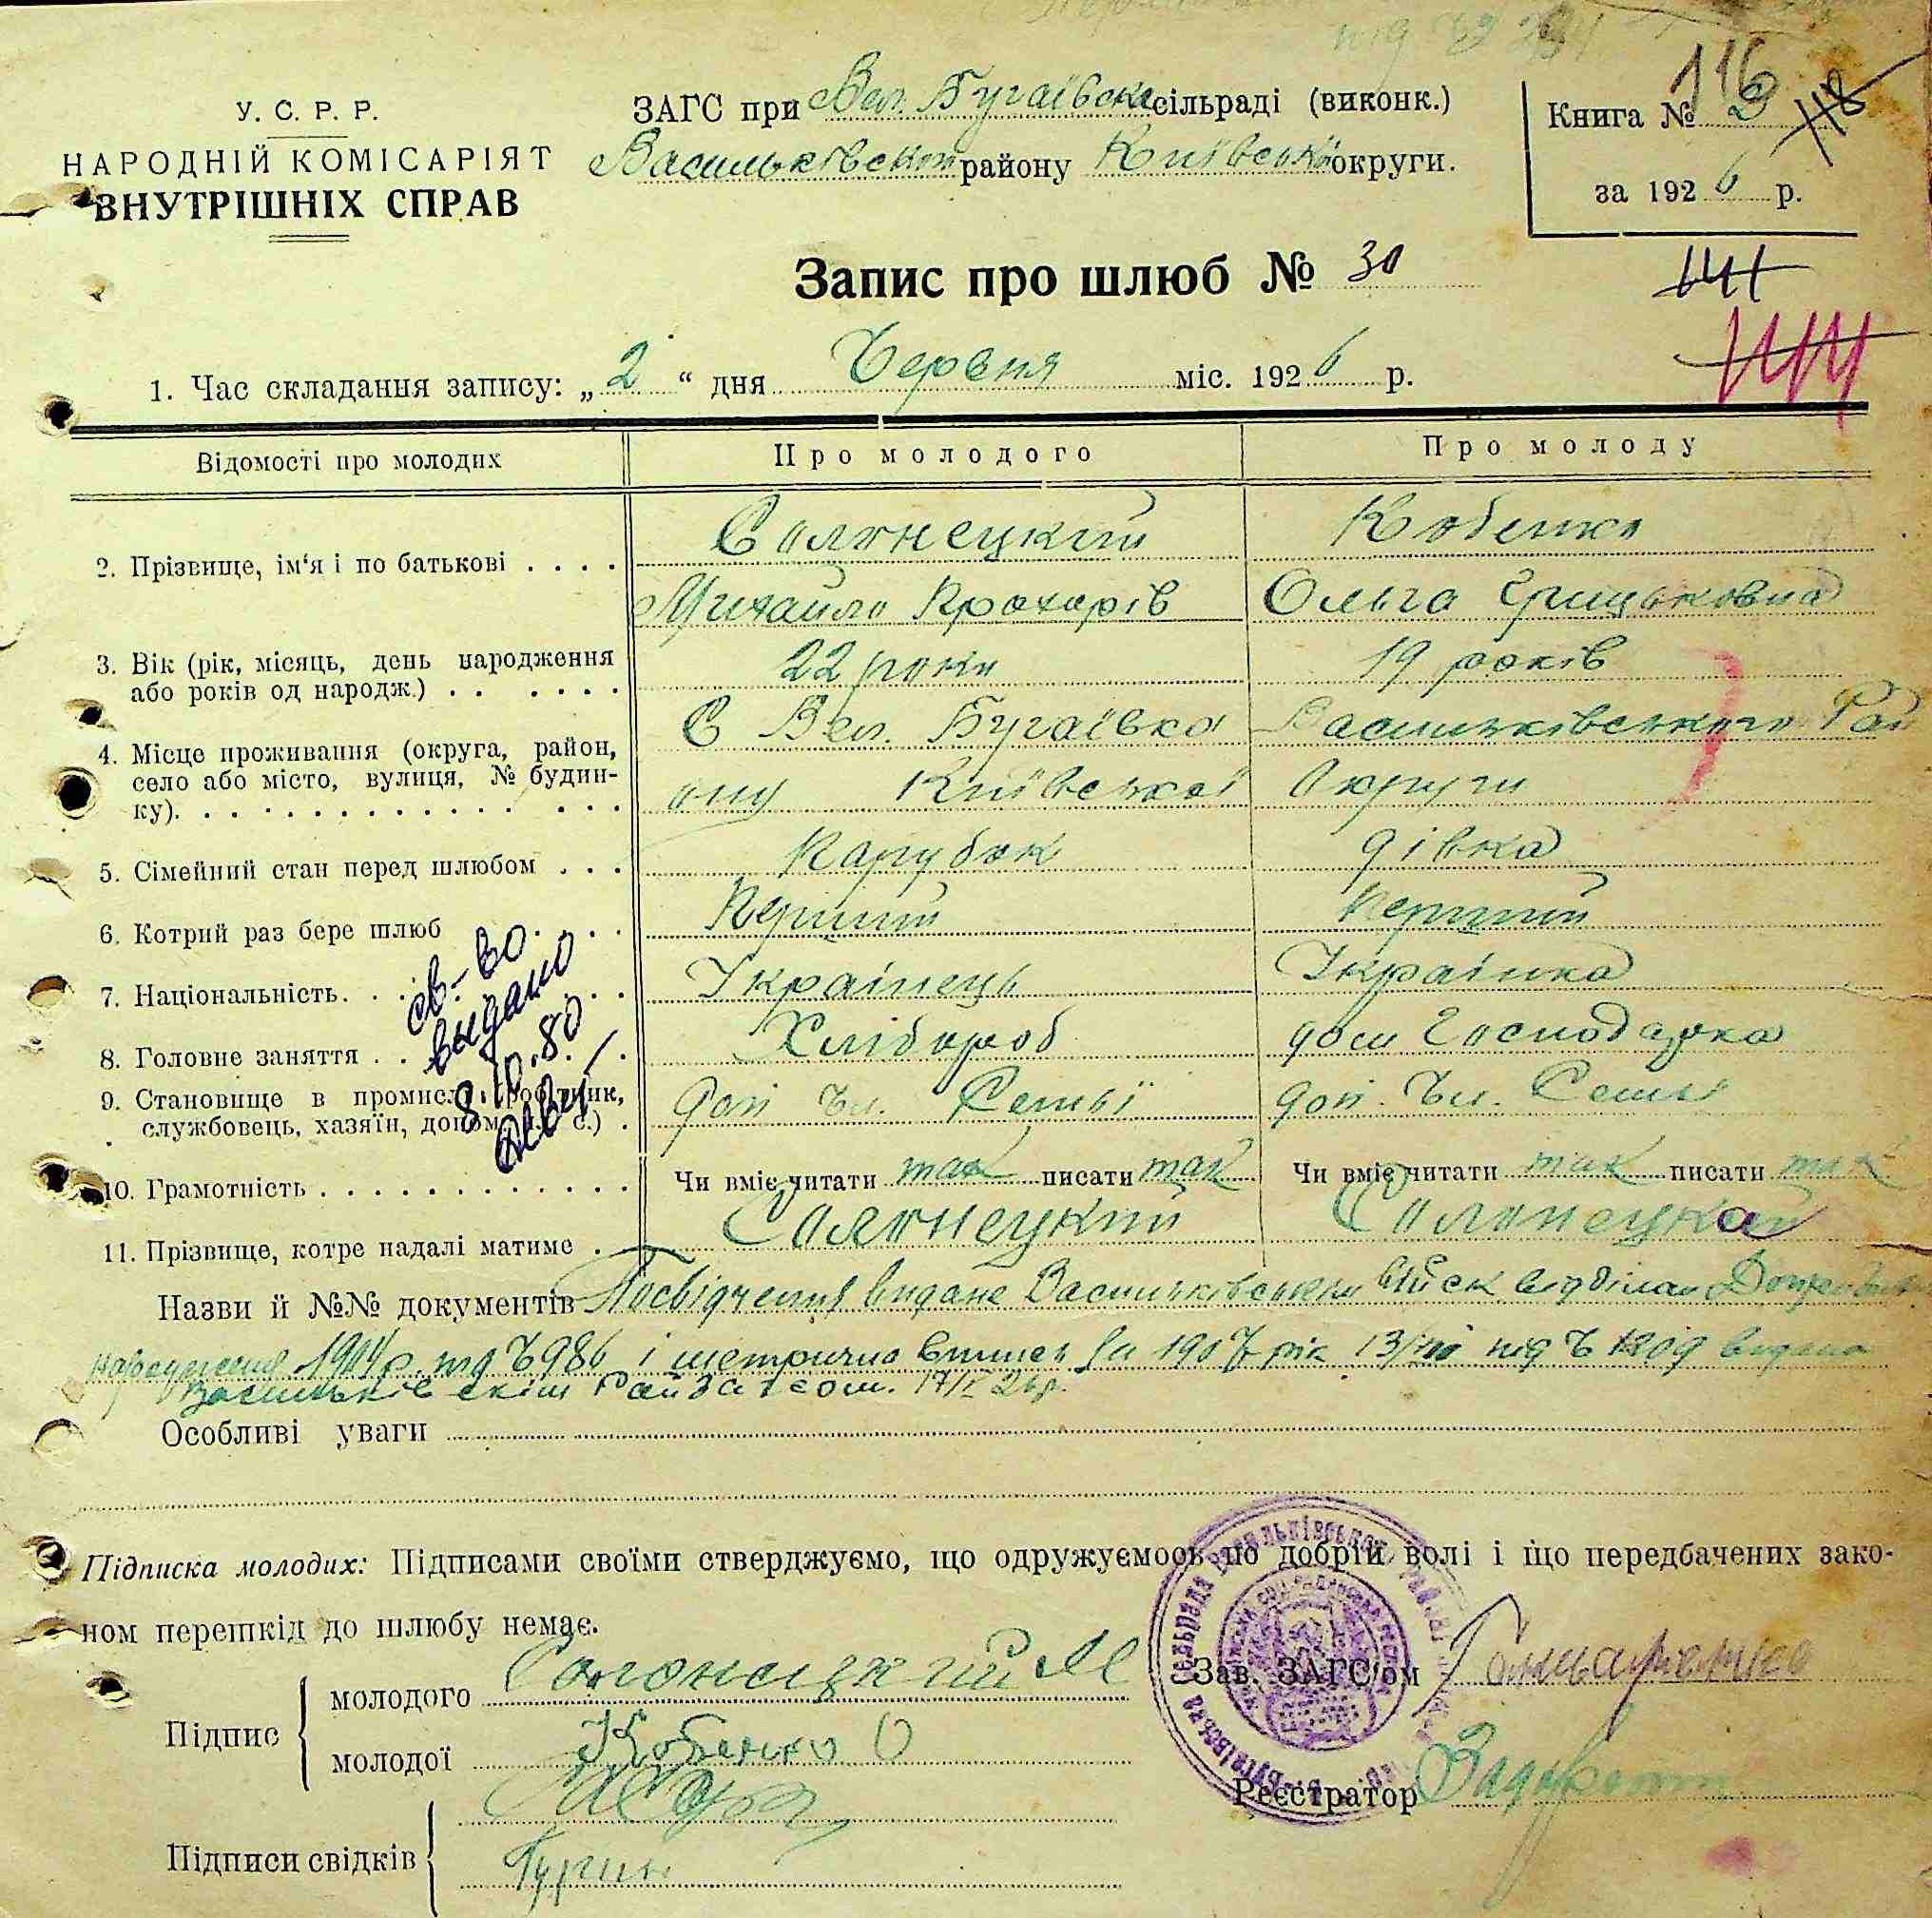 під
116
У. С. Р. Р.
НАРОДНІЙ КОМІСАРІЯТ
ВНУТРІШНІХ СПРАВ
ЗАГС при Вел. Бугаївська сільраді (виконк.)
Васильківськом району Київської округи.
Книга №
118
за 1926 р.
Запис про шлюб № 30
1. Час складання запису: „2“ дня Червня міс. 1926 р.
Відомості про молодих
Про молодого
Про молоду
2. Прізвище, ім'я і по батькові . . . .
Солонецкий
Кобенко
Михайло Прохорів
Ольга Грицьковна
3. Вік (рік, місяць, день народження
або років од народж.) . . . . . .
22 роки
19 років
4. Місце проживання (округа, район,
село або місто, вулиця, № будин-
ку).
С Вел. Бугаївка Васильківського Рай
ону Київської Округи
5. Сімейний стан перед шлюбом . . .
Парубок
дівка
6. Котрий раз бере шлюб
Перший
Перший
7. Національність.
Українець
Українка
8. Головне заняття . .
Хлібороб
дом Господарка
св-во
выдано
8.10.80
9. Становище в промисл.
службовець, хазяїн,
доп Чл. Семьї
доп. Чл. Семьї
10. Грамотність
Чи вміє читати так писати так
Чи вміє читати так писати так
11. Прізвище, котре надалі матиме .
Солонецкий
Солонецкая
Назви й №№ документів Посвідчення видане Васильківським війск відділам
народження 1904 р. під Ч 986 і метрична випись за 1907 рік 13/VII під Ч видана
Васильківским РайЗагсом. 26 р.
Особливі уваги
Підписка молодих: Підписами своїми стверджуємо, що одружуємось по добрій волі і що передбачених зако-
ном перешкід до шлюбу немає.
Підпис
молодого Солонецкий М
молодої Кобенко О
Зав. ЗАГС'ом Гончаренко
Реєстратор
Підписи свідків